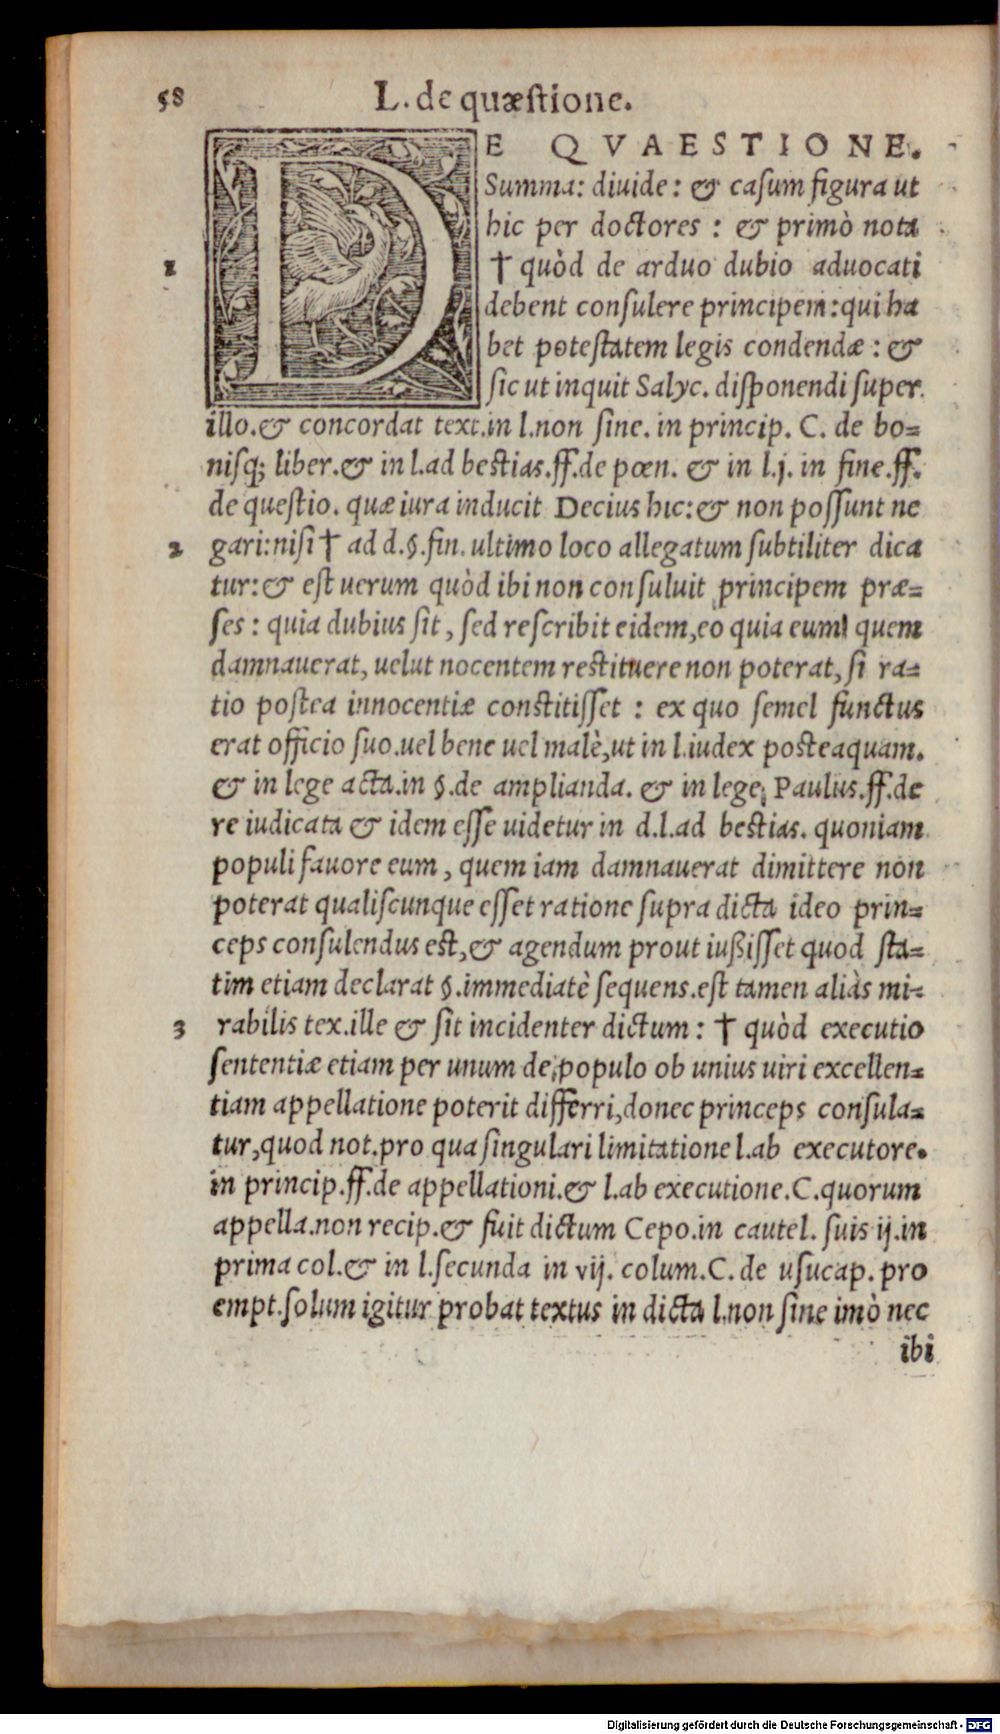 58 L. de quæſtione.
DE QVAESTIONE.
Summa: diuide: & caſum figura ut
hic per doctores: & primò nota
1 † quòd de arduo dubio aduocati
debent conſulere principem: qui ha
bet poteſtatem legis condendæ: &
ſic ut inquit Salyc. diſponendi ſuper
illo. & concordat text. in l. non ſine. in princip. C. de bo=
niſq; liber. & in l. ad beſtias. ff. de pœn. & in l. j. in fine. ff.
de queſtio. quæ iura inducit Decius hic: & non poſſunt ne
2 gari: niſi † ad d. §. fin. ultimo loco allegatum ſubtiliter dica
tur: & eſt uerum quòd ibi non conſuluit principem præ=
ſes: quia dubius ſit, ſed reſcribit eidem, eo quia eum quem
damnauerat, uelut nocentem reſtituere non poterat, ſi ra=
tio poſtea innocentiæ conſtitiſſet: ex quo ſemel functus
erat officio ſuo. uel bene uel malè, ut in l. iudex poſteaquam.
& in lege acta. in §. de amplianda. & in lege Paulus. ff. de
re iudicata & idem eſſe uidetur in d. l. ad beſtias. quoniam
populi fauore eum, quem iam damnauerat dimittere non
poterat qualiſcunque eſſet ratione ſupra dicta ideo prin=
ceps conſulendus eſt, & agendum prout iußiſſet quod ſta=
tim etiam declarat §. immediatè ſequens. eſt tamen aliàs mi=
3 rabilis tex. ille & ſit incidenter dictum: † quòd executio
ſententiæ etiam per unum de populo ob unius uiri excellen=
tiam appellatione poterit differri, donec princeps conſula=
tur, quod not. pro qua ſingulari limitatione l. ab executore.
in princip. ff. de appellationi. & l. ab executione. C. quorum
appella. non recip. & fuit dictum Cepo. in cautel. ſuis ij. in
prima col. & in l. ſecunda in vij. colum. C. de uſucap. pro
empt. ſolum igitur probat textus in dicta l. non ſine imò nec
ibi
Digitalisierung gefördert durch die Deutsche Forschungsgemeinschaft - DFG